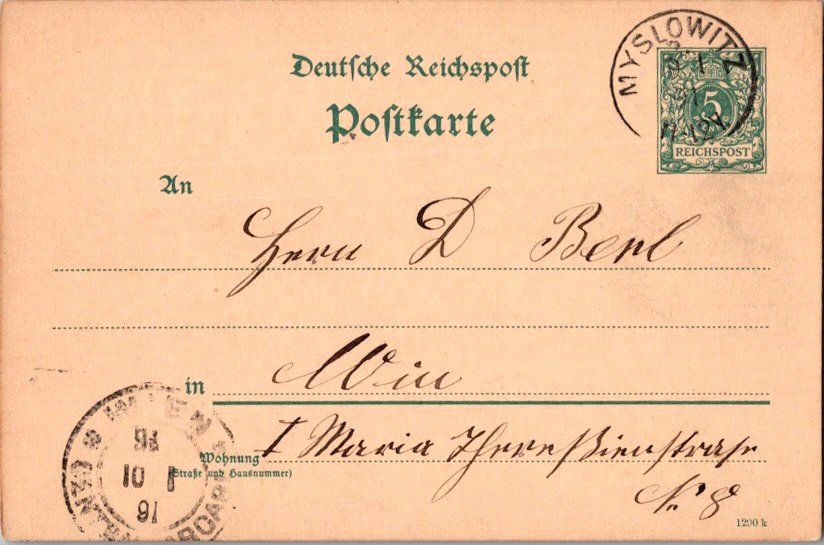 Deutsche Reichspost
MYSLOWITZ
5
REICHSPOST
Postkarte
An
Herrn D Berl
in Wien
WIEN
Wohnung I Maria Theresienstraße
(Straße und Hausnummer)
No 8
1290 k